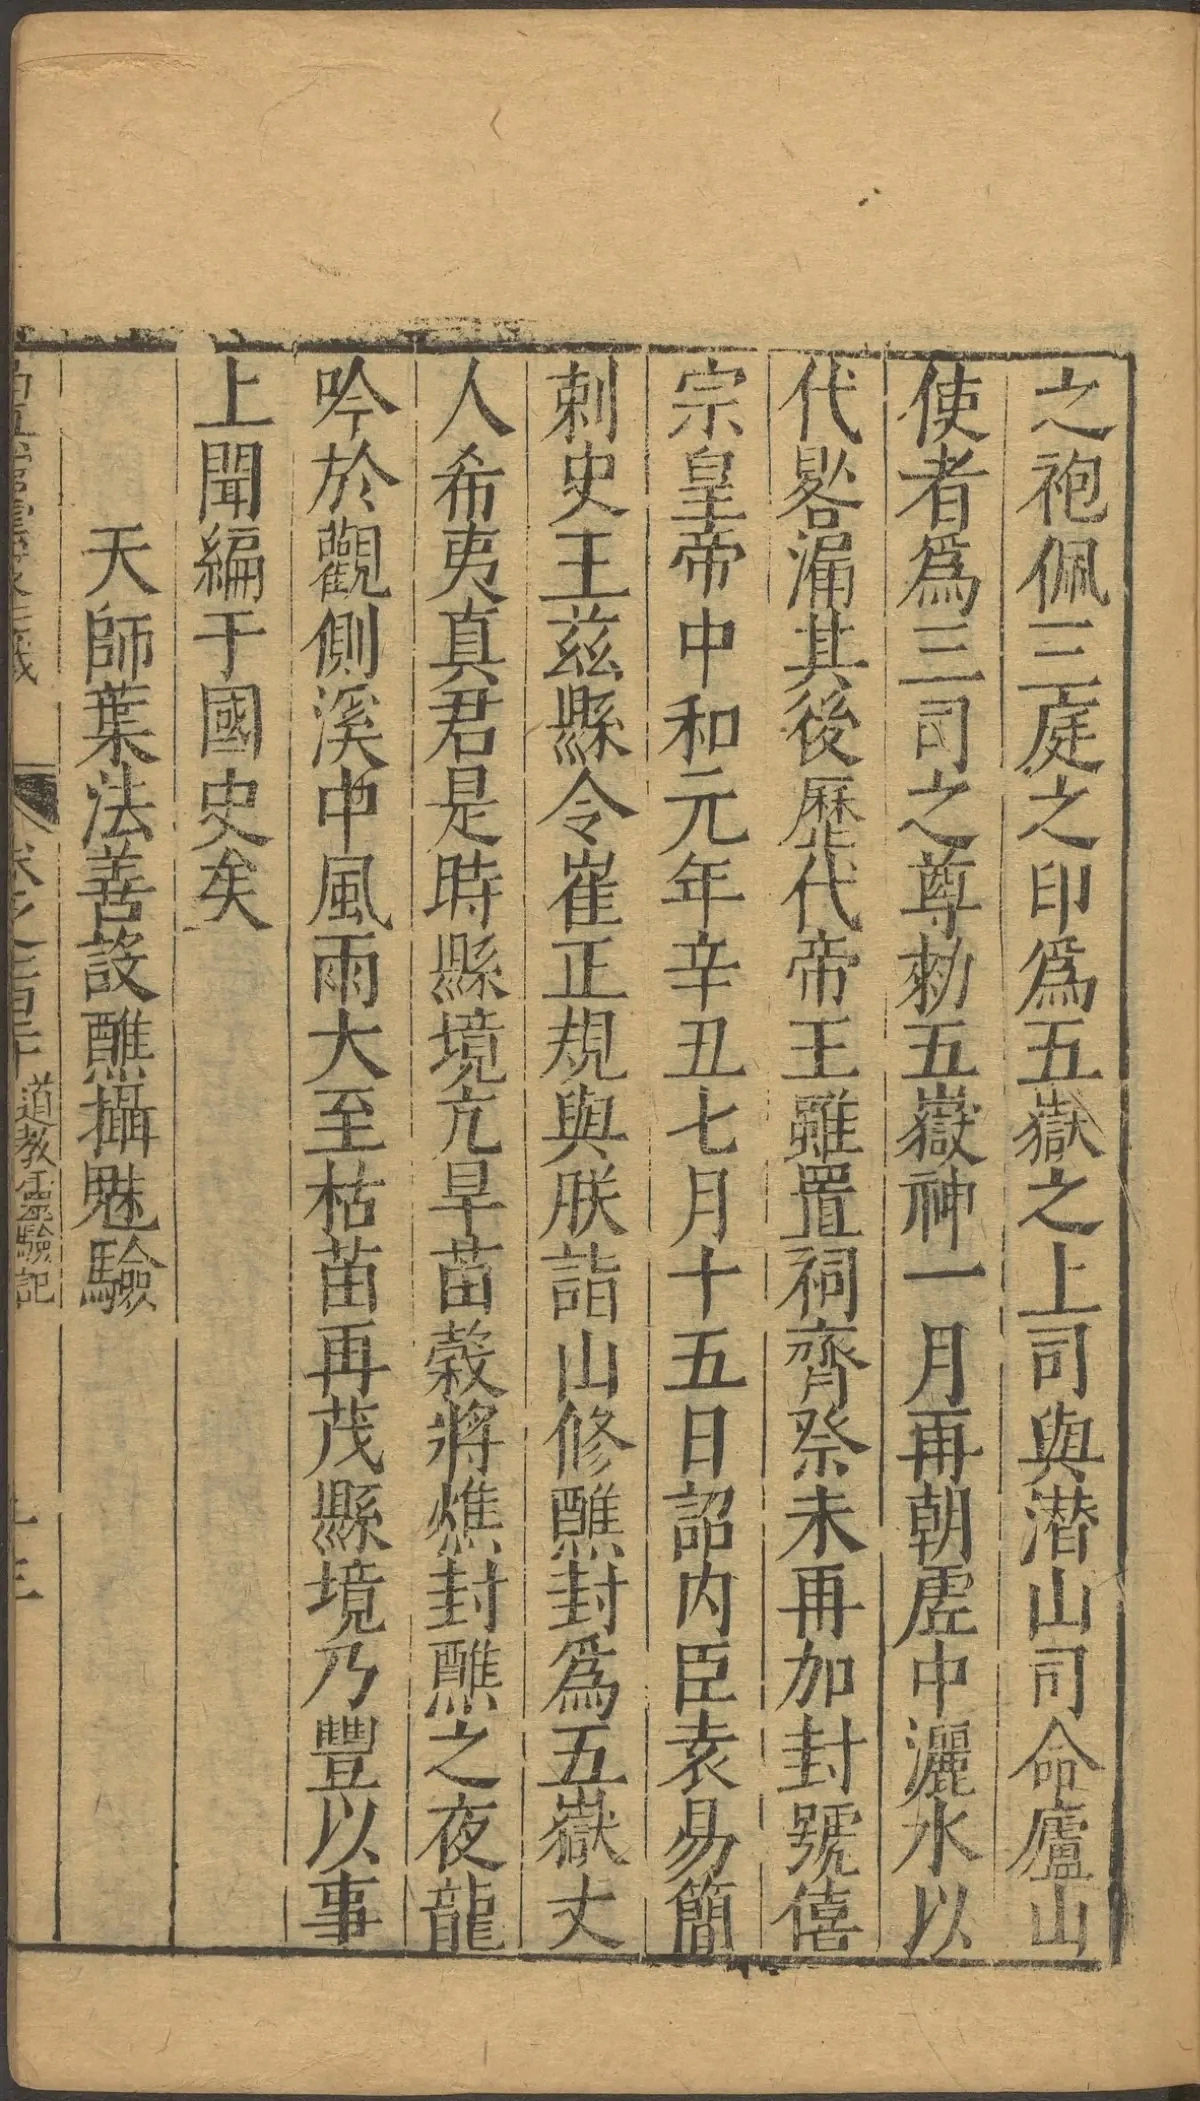 之袍佩三庭之印爲五嶽之上司與潛山司命廬山
使者爲三司之尊勑五嶽神一月再朝虛中灑水以
代晷漏其後歷代帝王雖置祠齊祭未再加封號僖
宗皇帝中和元年辛丑七月十五日詔内臣袁易簡
刺史王兹縣令崔正規與朕詣山修醮封爲五嶽丈
人希夷真君是時縣境亢旱苗穀將燋封醮之夜龍
吟於觀側溪中風雨大至枯苗再茂縣境乃豐以事
上聞編于國史矣
天師葉法善設醮攝魅驗
卷之一百二十道教靈驗記